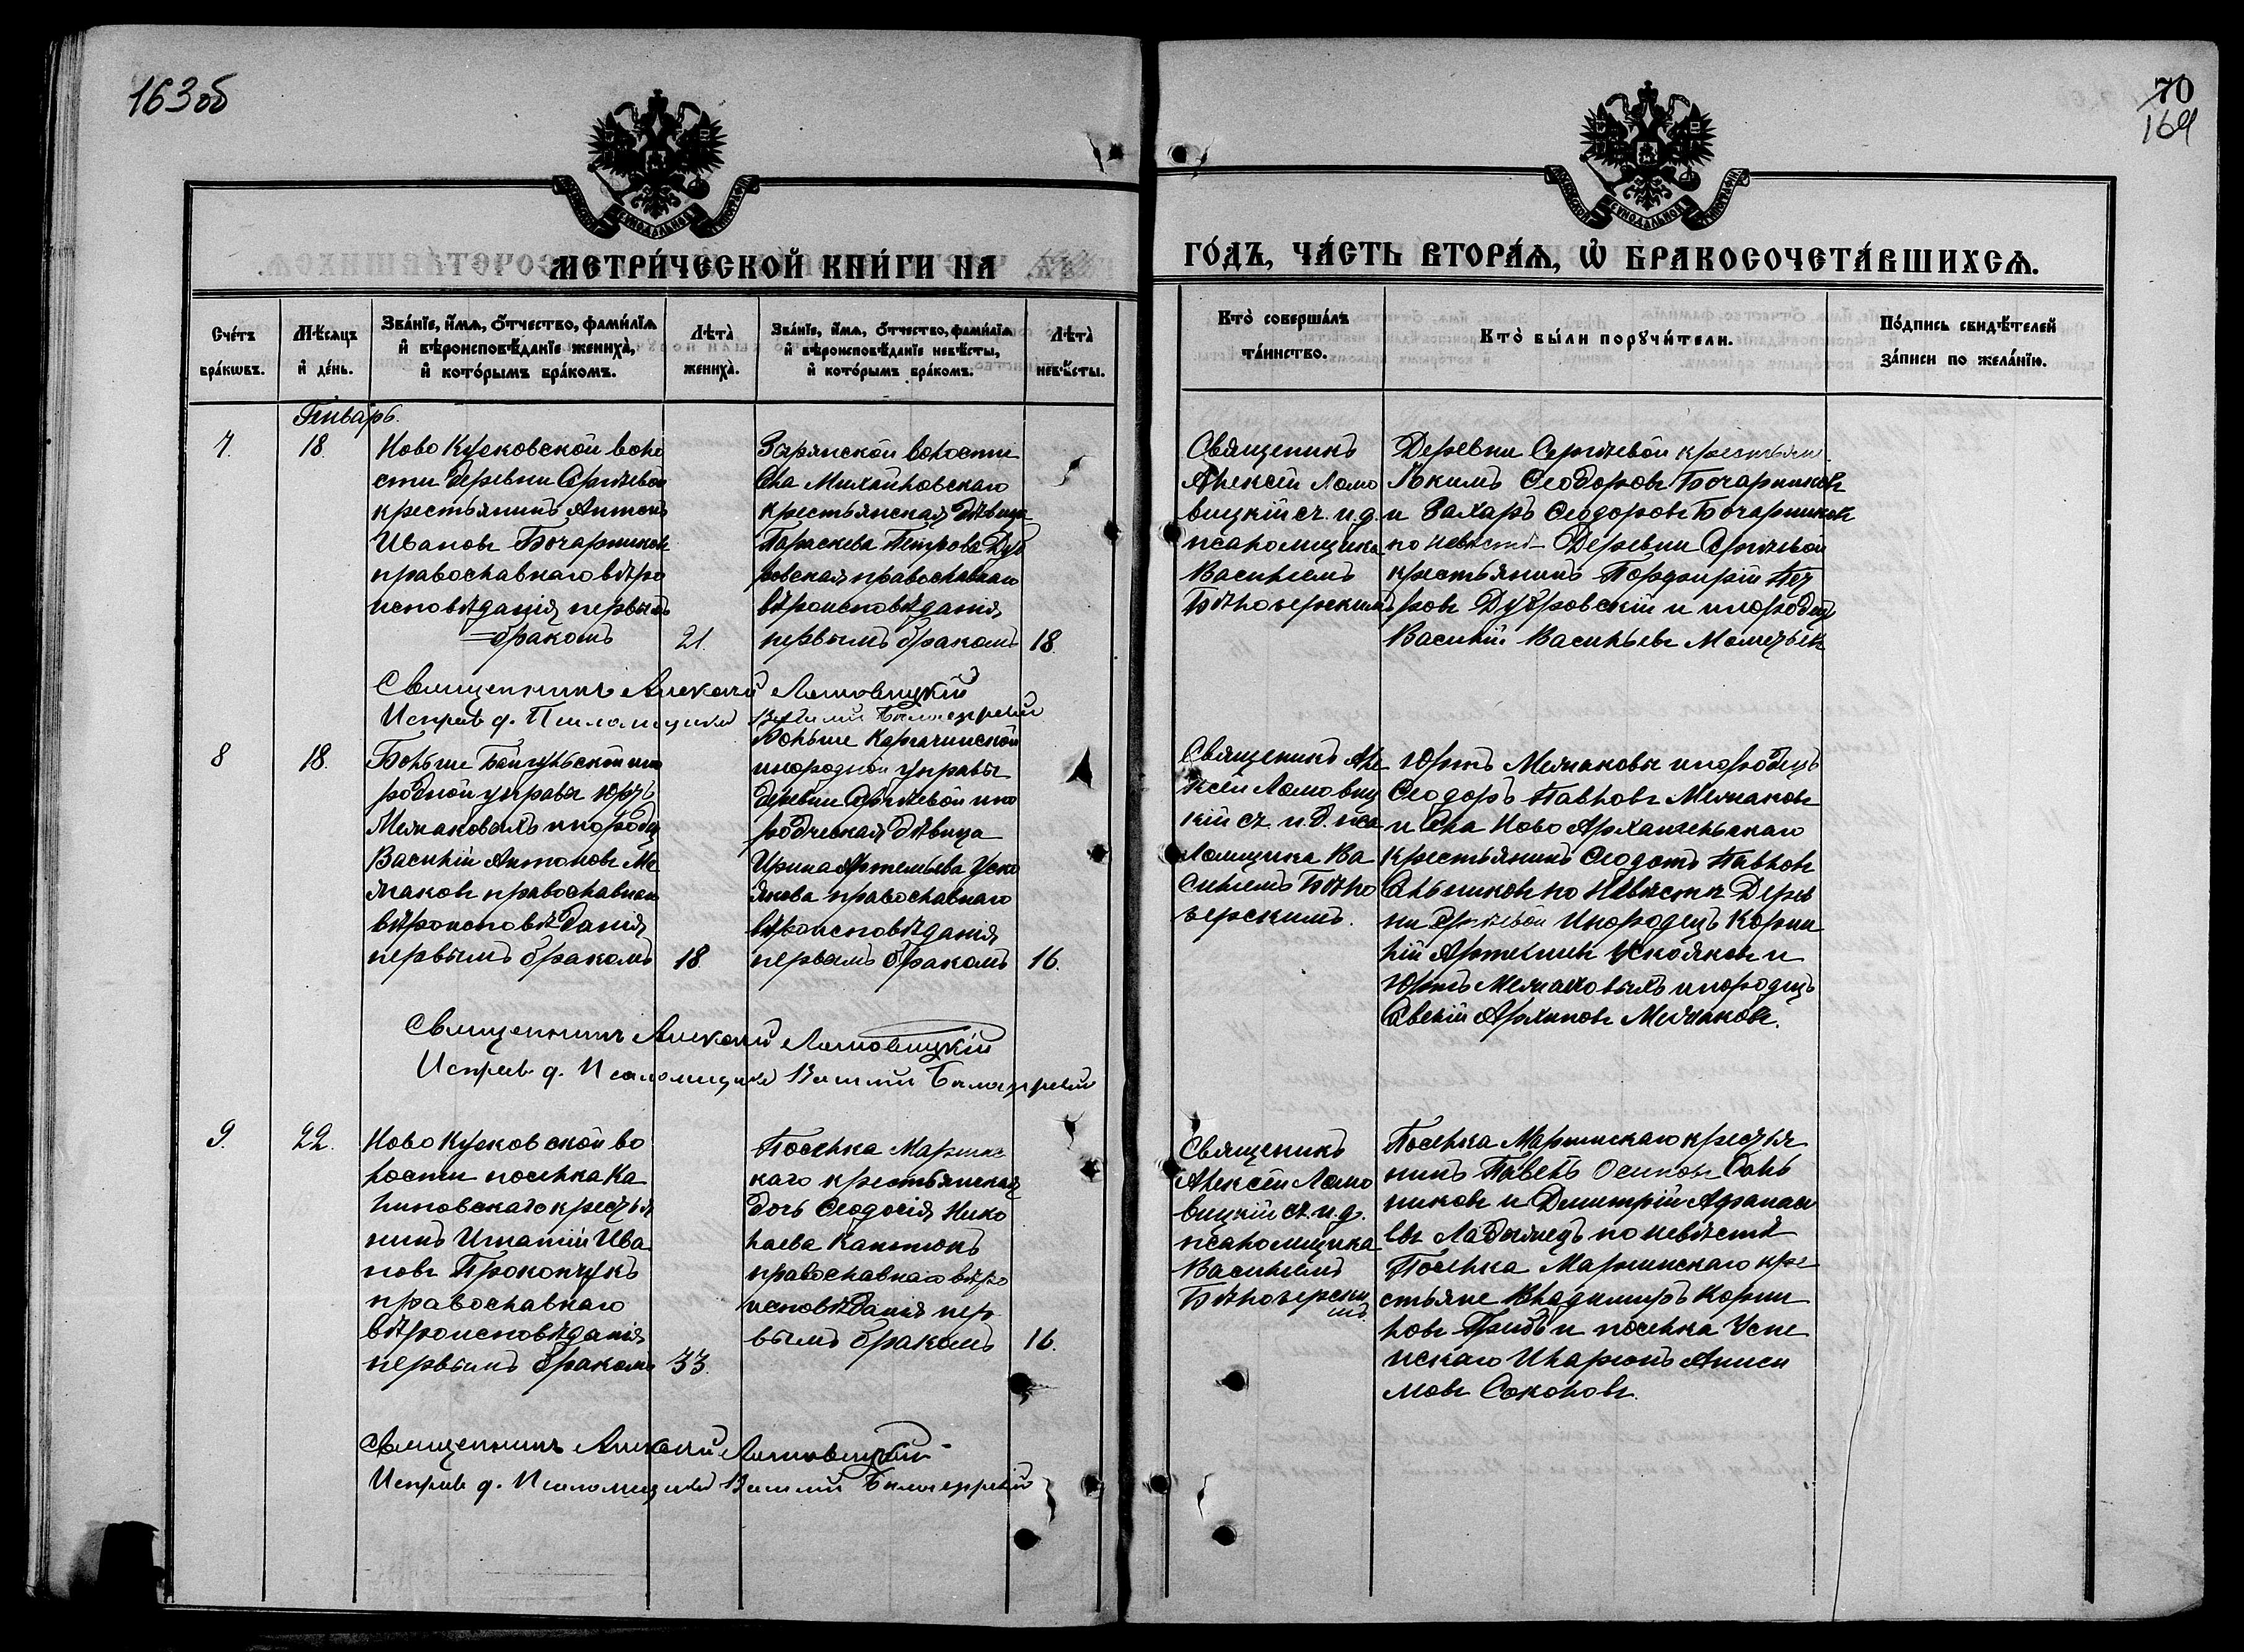 163об
70
164
МЕТРИ́ЧЕСКОЙ КНИ́ГИ НА
ГО́ДЪ, ЧА́СТЬ ВТОРА́Ѧ, Ѽ БРАКОСОЧЕТА́ВШИХСѦ.
Сче́тъ бра́кѡвъ.
Мѣ́сѧцъ и҆ де́нь.
Зва́нїе, и҆́мѧ, ѻ҆́тчество, фами́лїѧ
и҆ вѣроисповѣ́данїе жениха̀,
и҆ кото́рымъ бра́комъ.
Лѣта̀ жениха̀.
Зва́нїе, и҆́мѧ, ѻ҆́тчество, фами́лїѧ
и҆ вѣроисповѣ́данїе невѣ́сты,
и҆ кото́рымъ бра́комъ.
Лѣта̀ невѣ́сты.
Кто̀ соверша́лъ
та́инство.
Кто̀ бы́ли порꙋчи́тели.
По́дпись свидѣ́телей
за́писи по жела́нїю.
Генварь.
7.
18.
Ново Кусковской воло
сти деревни Сергѣевой
крестьянинъ Антонъ
Ивановъ Бочарниковъ
православнаго вѣро
исповѣданія первымъ
=бракомъ
21.
Зырянской волости
Села Михайловскаго
крестьянская дѣвица
Параскева Петрова Дуб
ровская православнаго
вѣроисповѣданія
первымъ бракомъ
18.
Священикъ
Алексѣй Ломо
вицкій съ и.д.
псаломщика
Василіемъ
Бѣлозерскимъ
Деревни Сергѣевой крестьяне
Якимъ Ѳеодоровъ Бочарниковъ
и Захаръ Ѳеодоровъ Бочарниковъ
по невѣстѣ Деревни Сергѣевой
крестьянинъ Порфирій Пет
ровъ Дубровскій и инородец
Василій Васильевъ
Священникъ Алексѣй Ломовицкій
Исправ. д. Псаломщика Василій Бѣлозерскій
8
18.
Больше Байгульской ино
родной управы юртъ
инородец
Василій Антоновъ
православнаго
вѣроисповѣданія
первымъ бракомъ
18.
Больше Каргачинской
инородной управы
деревни Сергѣевой ино
родческая дѣвица
Ирина Артемьева Уско
якова православнаго
вѣроисповѣданія
первымъ бракомъ
16.
Священикъ Але
ксѣй Ломовиц
кій съ и.д. пса
ломщика Ва
силіемъ Бѣло
зерскимъ.
Юртъ инородецъ
Ѳеодоръ Павловъ
и Села Ново Архангельскаго
крестьянинъ Ѳеодотъ Павловъ
по Невѣстѣ Дерев
ни Сергѣевой Инородецъ Корни
лій Артемьевъ Ускояковъ и
Юртъ инородецъ
Архиповъ
Священникъ Алексѣй Ломовицкій
Исправ. д. Псаломщика Василій Бѣлозерскій
9.
22.
Ново Кусковской во
лости поселка Ка
линовскаго кресть
нинъ Игнатій Ива
новъ Прокопчукъ
православнаго
вѣроисповѣданія
первымъ бракомъ
33.
Поселка Маріинс
каго крестьянская
дочь Ѳеодосія Нико
лаева Капитонъ
православнаго вѣро
исповѣданія пер
вымъ бракомъ
16.
Священикъ
Алексѣй Ломо
вицкій съ и.д.
псаломщика
Василіемъ
Бѣлозерски
мъ
Поселка Маріинскаго кресть
нинъ Павелъ Осиповъ Саль
никовъ и Димитрій Афанась
евъ по невѣстѣ
Поселка Маріинскаго кре
стьяне Владимиръ Корни
ловъ и поселка Успе
нскаго Иларіонъ Аниси
мовъ Соколовъ.
Священникъ Алексѣй Ломовицкій
Исправ. д. Псаломщика Василій Бѣлозерскій